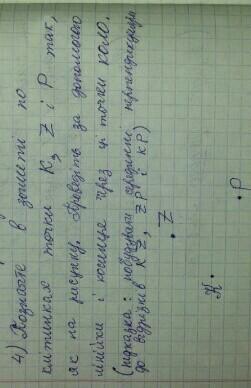 4) Позначте в зошиті по
клітинкам точки K, Z і P так,
як на рисунку. Проведіть за допомогою
лінійки і косинця через ці точки коло.
(підказка: побудувати серединні перпендикуляри
до відрізків KZ, ZP і KP)
Z
K
P